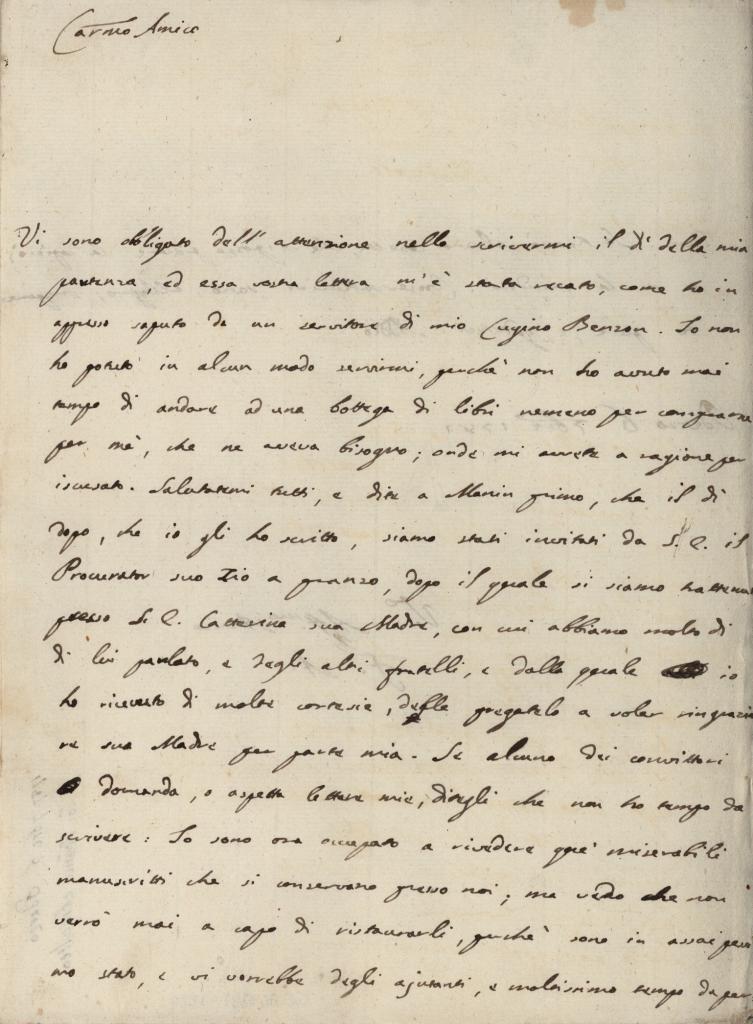 Carmo Amico
Vi sono obbligato dell' attenzione nello scrivermi il dì della mia
partenza, ed essa vostra lettera m'è stata recata, come ho in
appresso saputo da un servitore di mio Cugino Benzon. Io non
ho potuto in alcun modo servirmi, perchè non ho avuto mai
tempo di andare ad una bottega di libri nemeno per comprarne
per mè, che ne aveva bisogno; onde mi avrete a ragione per
iscusato. Salutatemi tutti, e dite a Manin primo, che il dì
dopo, che io gli ho scritto, siamo stati invitati da S. E. il
Procurator suo Zio a pranzo, dopo il quale si siamo trattenuti
presso S. E. Catterina sua Madre, con cui abbiamo molto di
di lui parlato, e degli altri fratelli, e dalla quale io
ho ricevuto di molte cortesie, delle pregatelo a voler ringrazia
re sua Madre per parte mia. Se alcuno dei convittori
domanda, o aspetta lettere mie, ditegli che non ho tempo da
scrivere: Io sono ora occupato a rivedere que' miserabili
manuscritti che si conservano presso noi; ma vedo che non
verrò mai a capo di ristaurarli, perchè sono in assai pessi
mo stato, e vi vorrebbe degli ajutanti, e moltissimo tempo da per